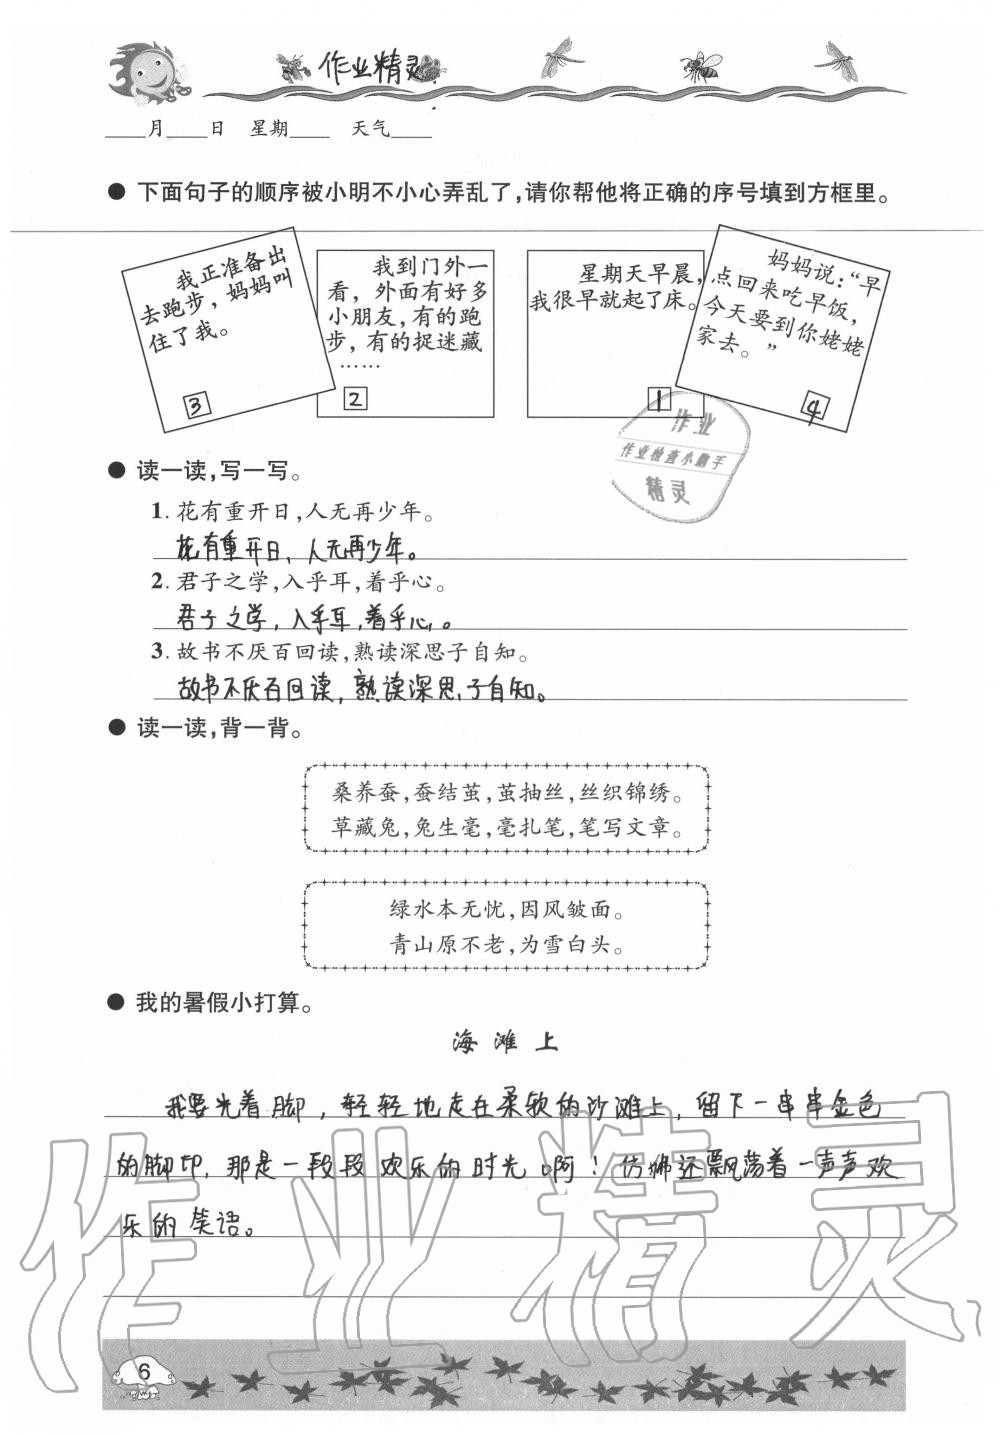 作业精灵
____月____日 星期____ 天气____
● 下面句子的顺序被小明不小心弄乱了,请你帮他将正确的序号填到方框里。
我正准备出
去跑步，妈妈叫
住了我。
3
我到门外一
看，外面有好多
小朋友,有的跑
步，有的捉迷藏
……
2
星期天早晨,
我很早就起了床。
1
妈妈说:“早
点回来吃早饭，
今天要到你姥姥
家去。”
4
作业
作业检查小帮手
精灵
● 读一读,写一写。
1. 花有重开日,人无再少年。
花有重开日，人无再少年。
2. 君子之学,入乎耳,着乎心。
君子之学，入乎耳,着乎心。
3. 故书不厌百回读,熟读深思子自知。
故书不厌百回读，熟读深思子自知。
● 读一读,背一背。
桑养蚕,蚕结茧,茧抽丝,丝织锦绣。
草藏兔,兔生毫,毫扎笔,笔写文章。
绿水本无忧,因风皱面。
青山原不老,为雪白头。
● 我的暑假小打算。
海滩上
我要光着脚，轻轻地走在柔软的沙滩上，留下一串串金色
的脚印，那是一段段欢乐的时光啊！仿佛还飘荡着一声声欢
乐的笑语。
作业精灵
6